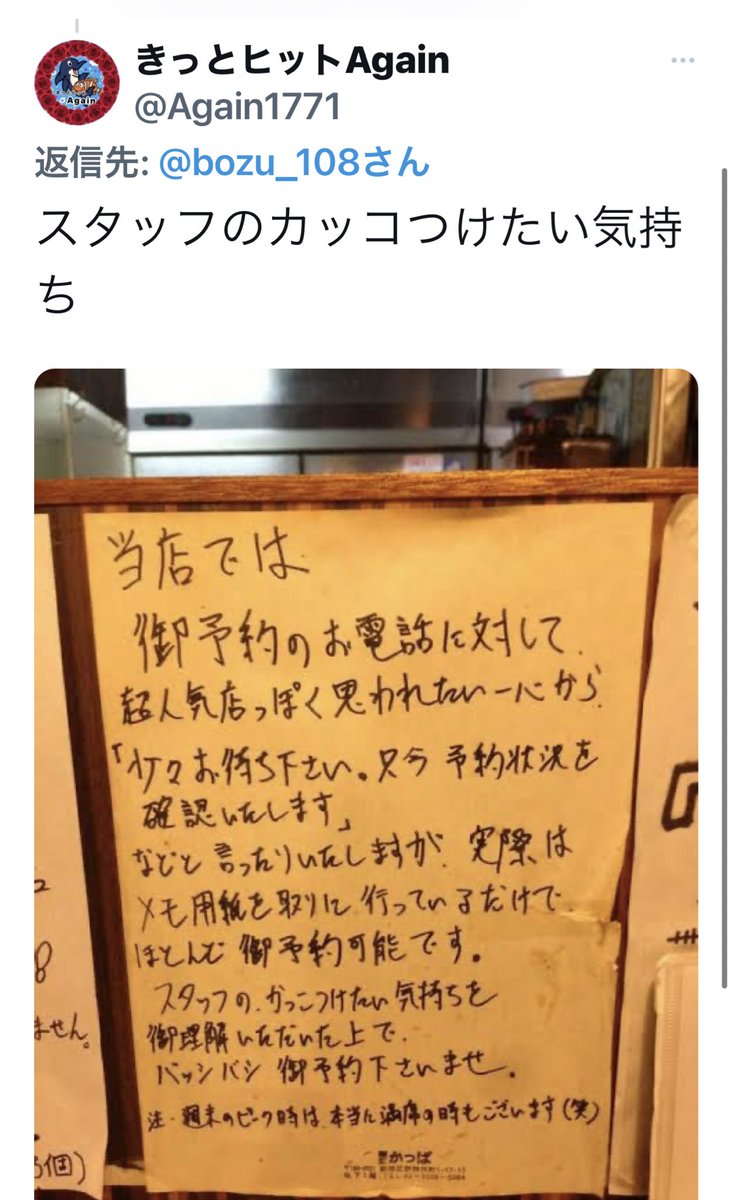 きっとヒットAgain
@Again1771
返信先: @bozu_108さん
スタッフのカッコつけたい気持
ち
Again
当店では
御予約のお電話に対して、
超人気店っぽく思われたい一心から
「少々お待ち下さい。只今 予約状況を
確認いたします」
などと言ったりいたしますが、実際は
メモ用紙を取りに行っているだけで
ほとんど御予約可能です。
スタッフの、かっこつけたい気持ちを
御理解いただいた上で、
バッシバシ 御予約下さいませ。
注・週末のピーク時は、本当に満席の時もございます(笑)
かっぱ
ません。
個)